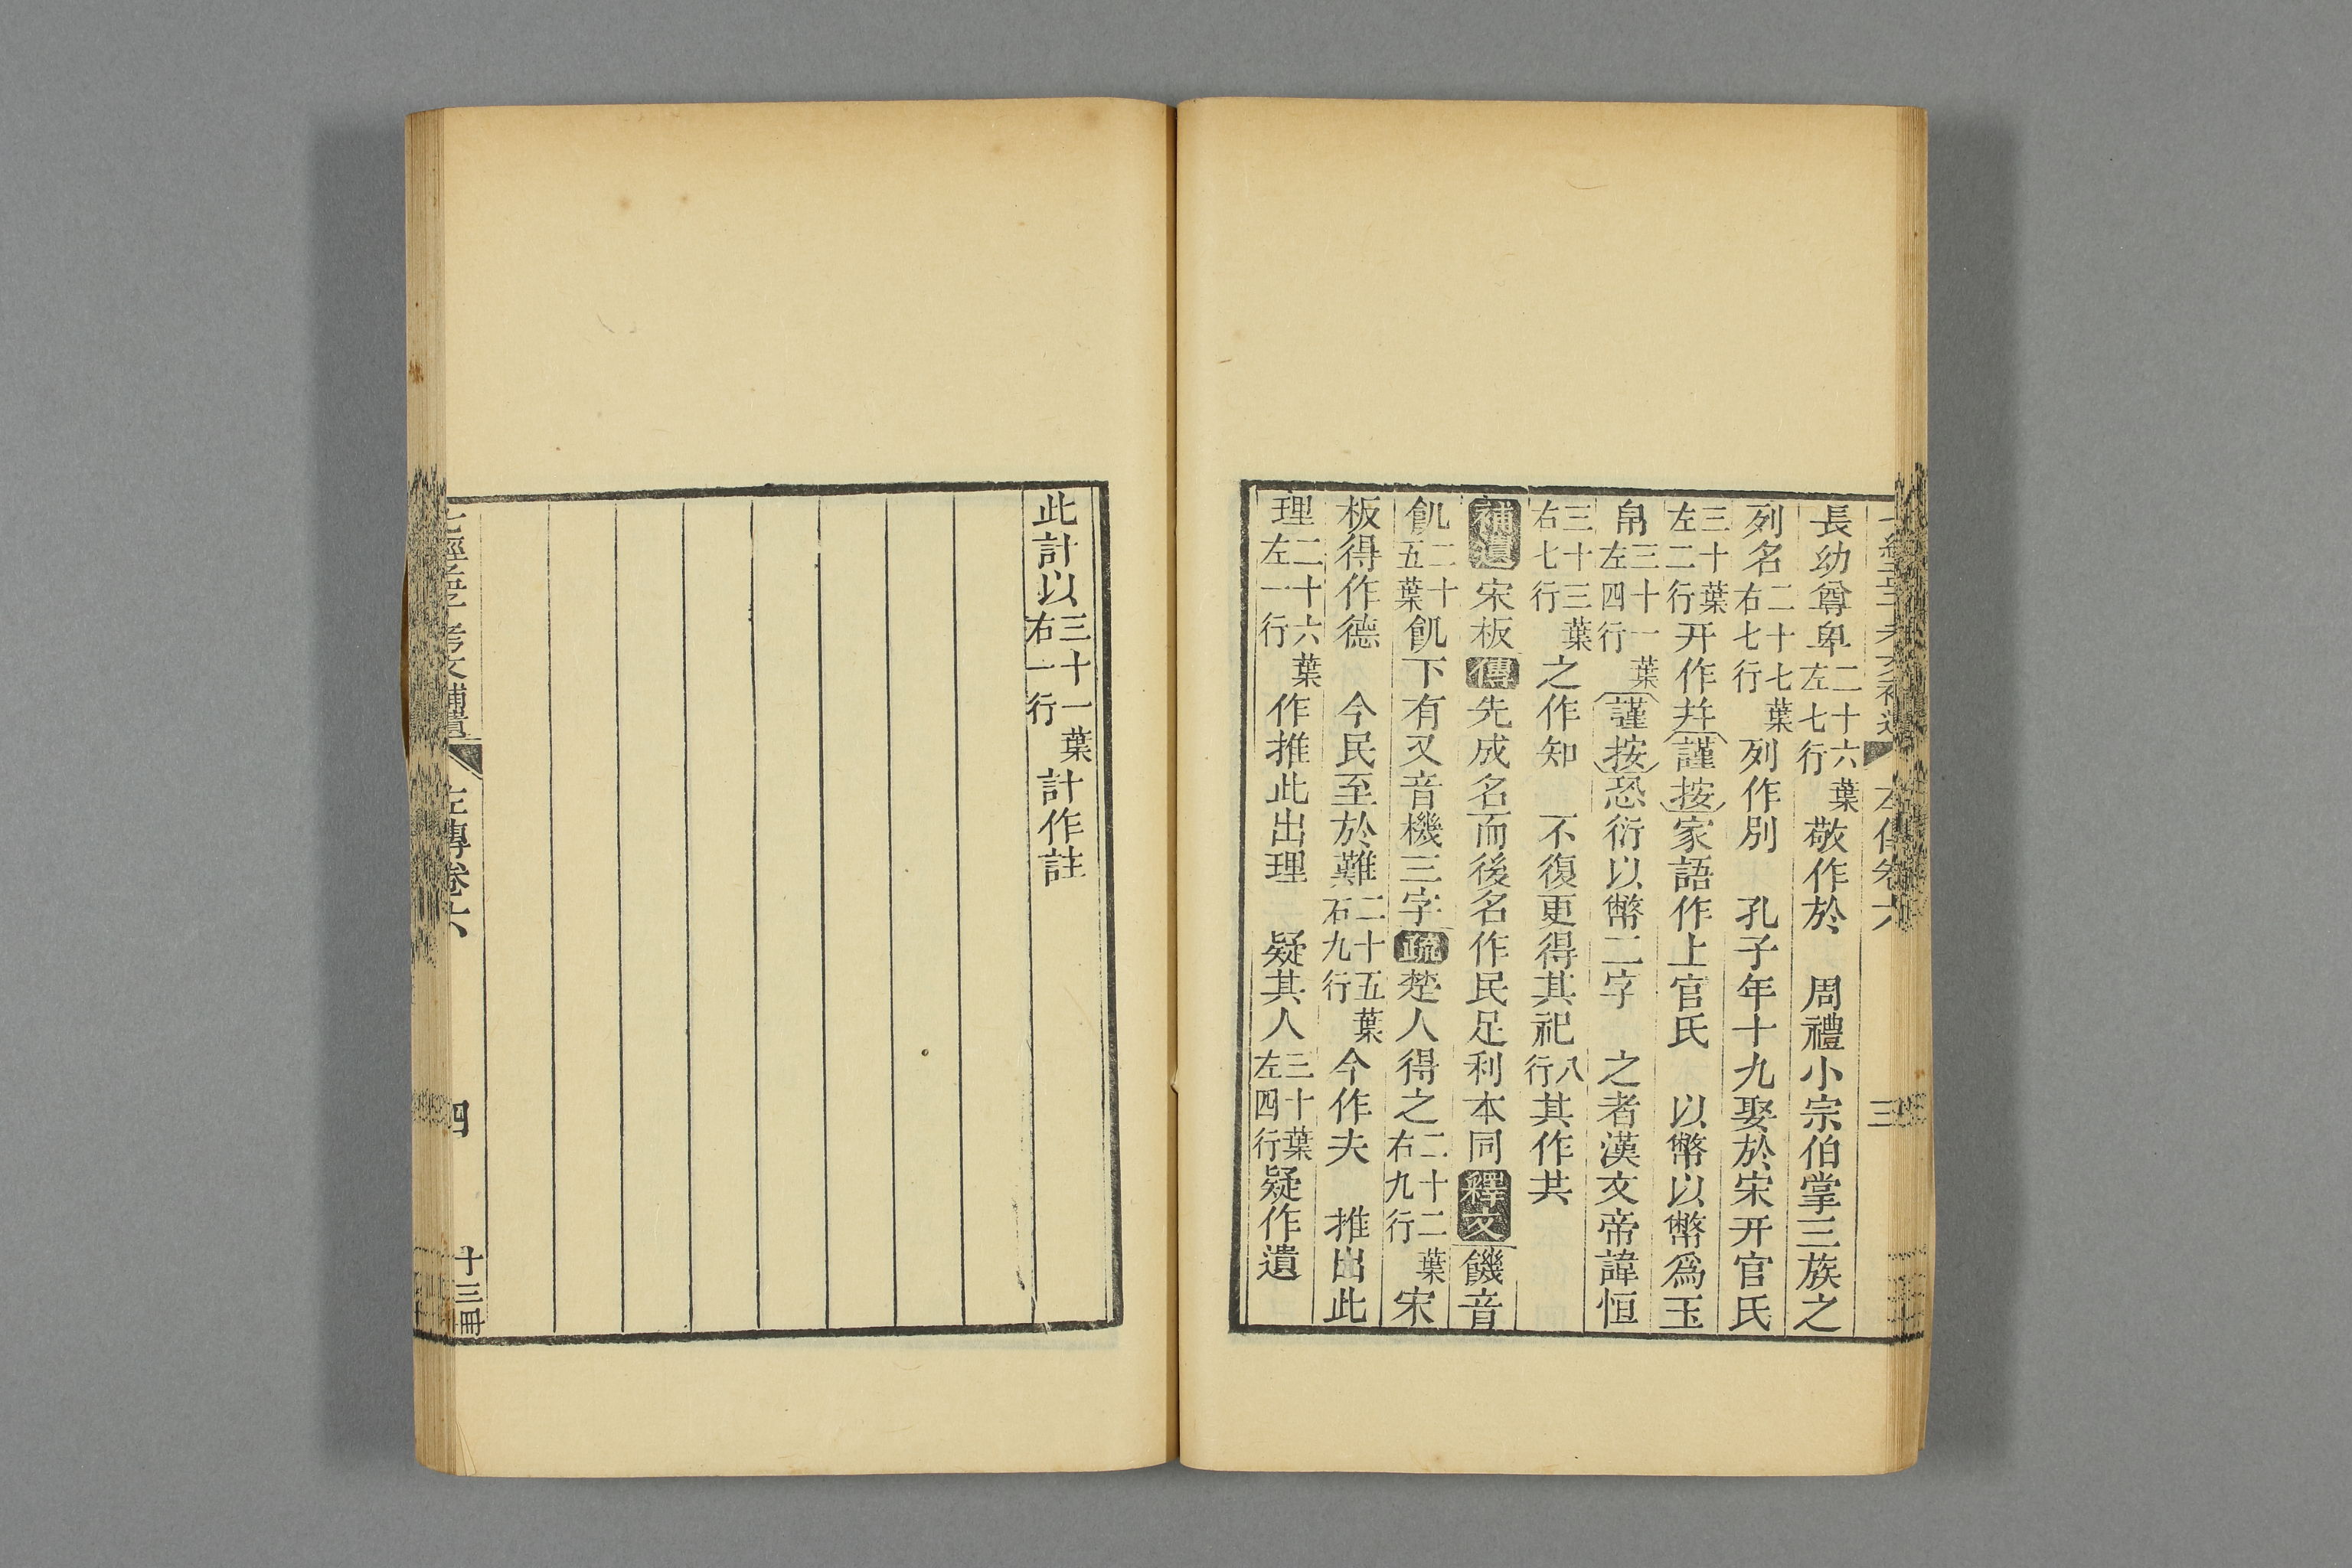 長幼尊卑二十六葉左七行敬作於　周禮小宗伯掌三族之
列名二十七葉右七行列作別　孔子年十九娶於宋幵官氏
三十葉左二行幵作幷謹按家語作上官氏　以幣以幣爲玉
帛三十一葉左四行謹按恐衍以幣二字　之者漢文帝諱恒
三十三葉右七行之作知　不復更得其祀八行其作共
補遺宋板傳先成名而後名作民足利本同釋文饑音
飢二十五葉飢下有又音機三字疏楚人得之二十二葉右九行宋
板得作德　今民至於難二十五葉右九行今作夫　推出此
理二十六葉左一行作推此出理　疑其人三十葉左四行疑作遺
此計以三十一葉右一行計作註
七經孟子考文補遺　左傳卷六　四　十三冊